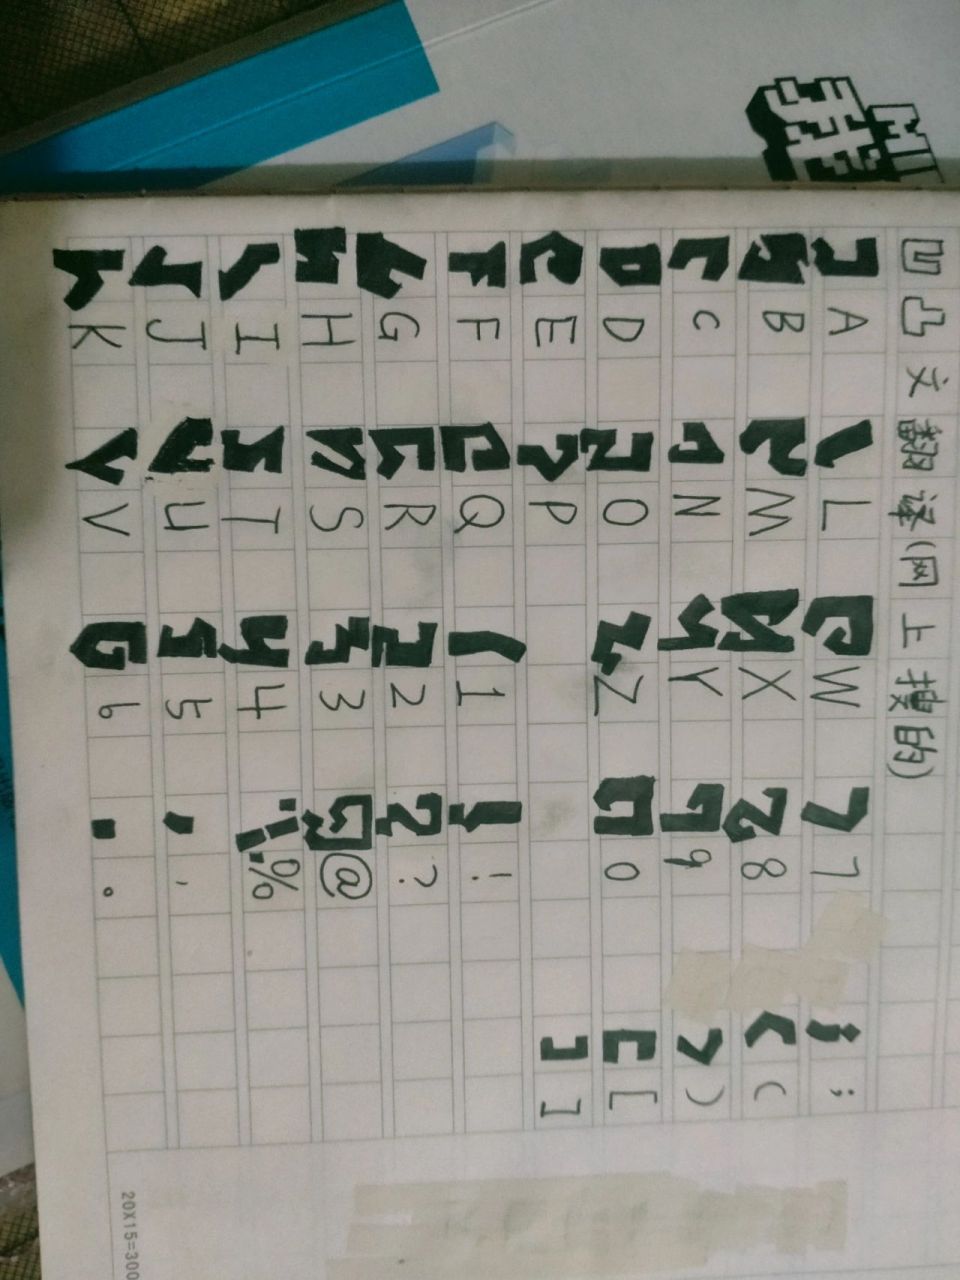 凹凸文翻译(网上搜的)
A L W 7 ;
B M X 8 (
C N Y 9 )
D O Z 0 [
E P ]
F Q 1 !
G R 2 ?
H S 3 @
I T 4 %
J U 5 ,
K V 6 。
20X15=300